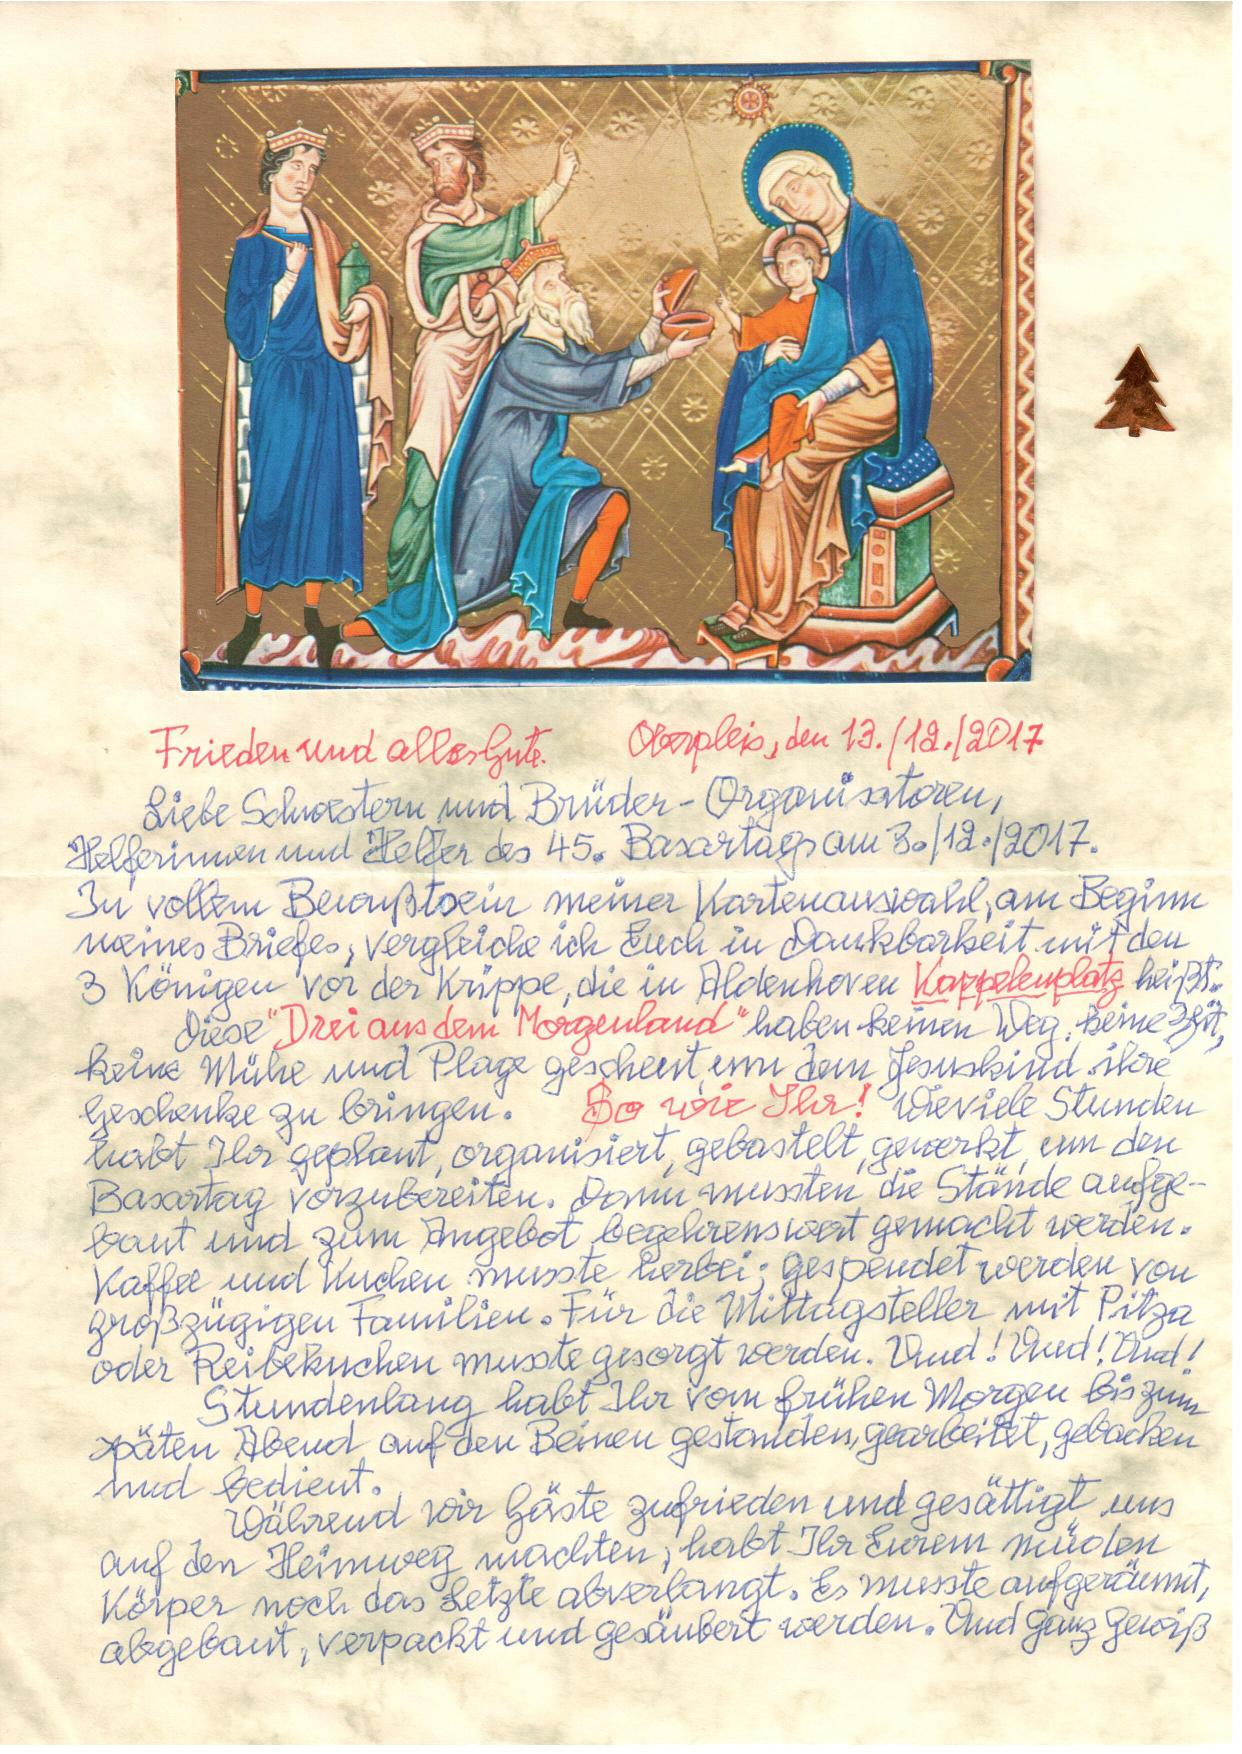 Frieden und alles Gute. Oberpleis, den 13./12./2017
Liebe Schwestern und Brüder - Organisatoren,
Helferinnen und Helfer des 45. Basartags am 3./12./2017.
In vollem Bewußtsein meiner Kartenauswahl, am Beginn
meines Briefes, vergleiche ich Euch in Dankbarkeit mit den
3 Königen vor der Krippe, die in Aldenhoven Kappelenplatz heißt.
Diese "Drei aus dem Morgenland" haben keinen Weg, keine Zeit,
keine Mühe und Plage gescheut, um dem Jesuskind ihre
Geschenke zu bringen. So wie Ihr! Wieviele Stunden
habt Ihr geplant, organisiert, gebastelt, gewerkt, um den
Basartag vorzubereiten. Dann mussten die Stände aufge-
baut und zum Angebot begehrenswert gemacht werden.
Kaffee und Kuchen musste herbei; gespendet werden von
großzügigen Familien. Für die Mittagsteller mit Pitza
oder Reibekuchen musste gesorgt werden. Und! Und! Und!
Stundenlang habt Ihr vom frühen Morgen bis zum
späten Abend auf den Beinen gestanden, gearbeitet, gebacken
und bedient.
Während wir Gäste zufrieden und gesättigt uns
auf den Heimweg machten, habt Ihr Eurem müden
Körper noch das Letzte abverlangt. Es musste aufgeräumt,
abgebaut, verpackt und gesäubert werden. Und ganz gewiß